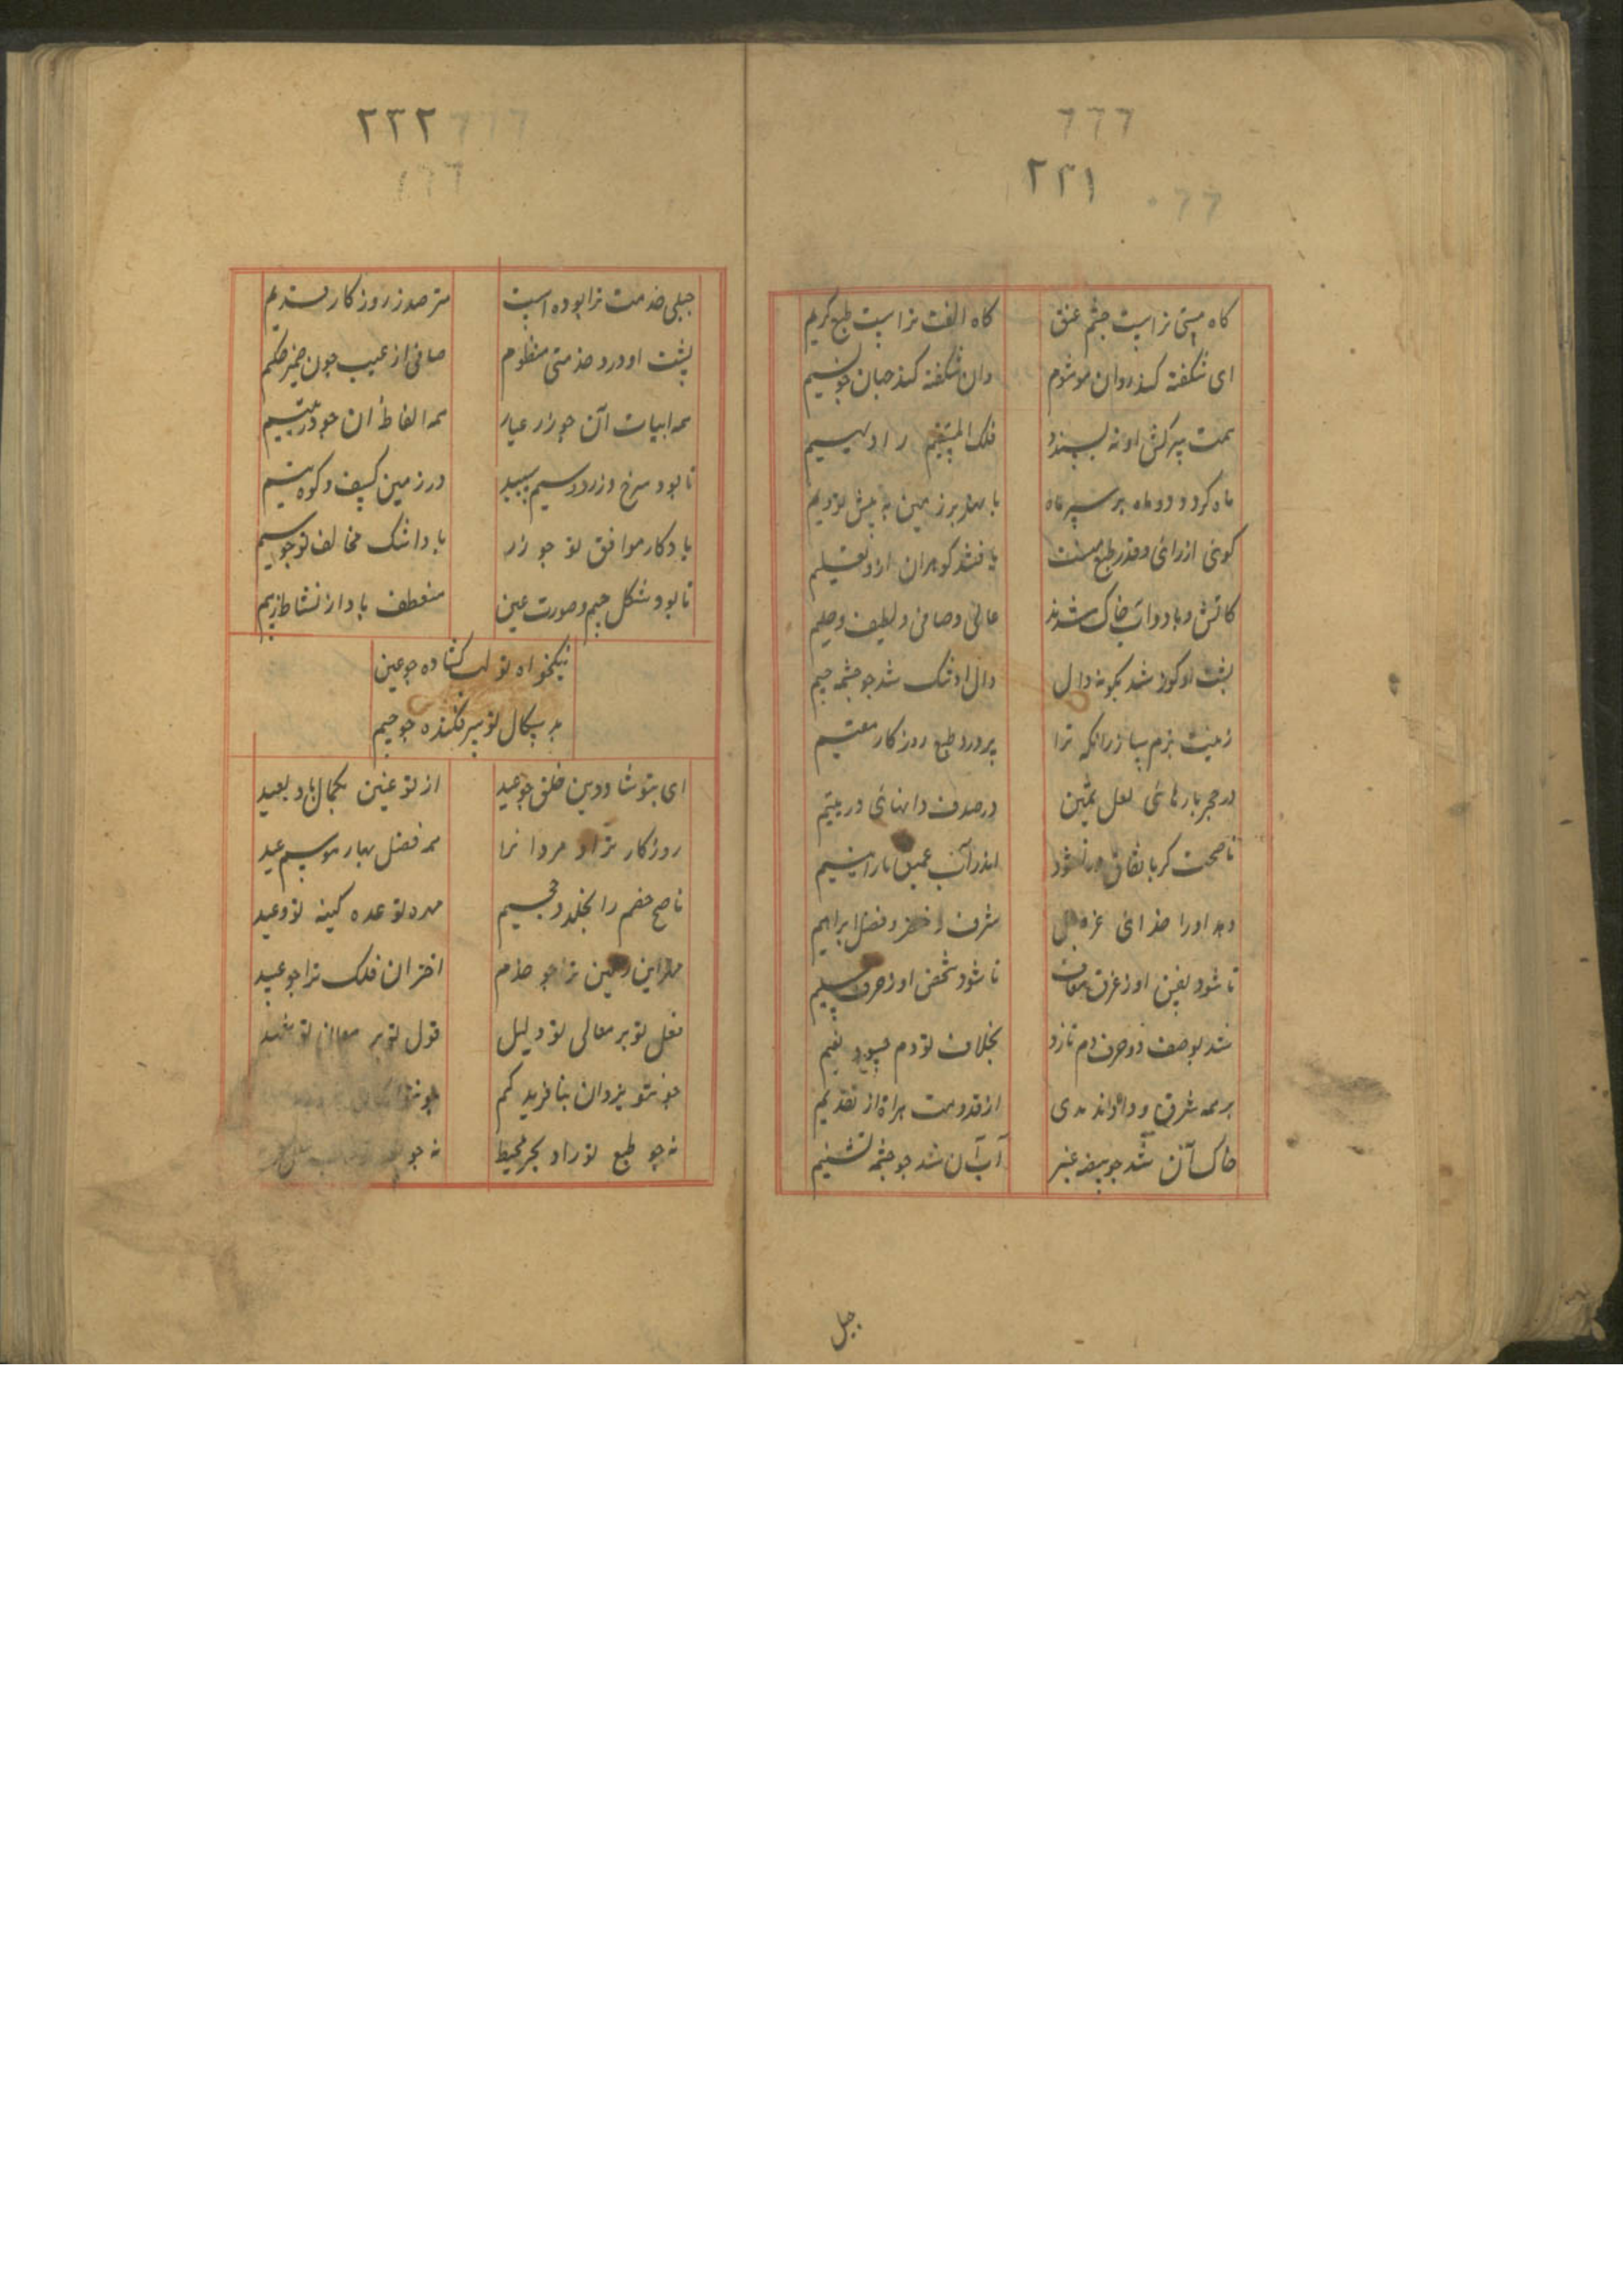 ۲۳۱
گاه مستی تراست چشم عنق
گاه الفت تراست طبع کریم
ای شکفته کند روان مو شوم
وان شکفته کند جهان چو نسیم
همت سرکش او نه پسندد
فلک المستقیم را دلیسیم
ماه کردد دو ماه بر سپهر ماه
با بهند بر زمین به پیش تو دیم
گوئی از رای و قدر طبع منت
یافتند گوهران ازو تعلیم
کاتش و باد و آب خاک شدند
عالی و صافی و لطیف و حلیم
پشت او کوز شد بگونه دال
دال او تنک شد چو چشمه جیم
زینت بزم ساز زانکه ترا
پرورد طبع روزکار مقیم
در حجر بارهائی لعل ثمین
در صدف دانهائی در یتیم
ناصحت کر باتفاق در شود
اندر آب عمیق نار
دهد او را خدای عز و جل
شرف خضر و فضل ابراهیم
تا شود نفس او ز غرق معاف
تا شود شخص او ز حرق سلیم
شد بوصف دو حرف دم نازد
بخلاف تو دم حسود لئیم
بر همه شرق و داند مدی
از قدومت هراة از تقدیم
خاک آن شد چو بیضه عنبر
آب آن شد چو چشمه تسنیم
جبل
۲۳۲
جبلی خدمت ترا بوده است
مترصد ز روزکار قدیم
پشت اورد خدمتی منظوم
صافی از عیب چون ضمیر حکیم
همه ابیات آن چو زر عیار
همه الفاظ آن چو در یتیم
تا بود سرخ و زرد و سیم سپید
در زمین کسیف و کوه
باد کار موافق تو چو زر
باد اشک مخالف تو چو سیم
تا بود شکل جیم و صورت عین
منعطف باد از نشاط ندیم
نیکخواه تو لب کشاده چو عین
بد سکال تو سر فکنده چو جیم
ای بتو شاد و دین خلق چو عید
از تو عین کمال باد بعید
روزکار نژاد مر دا نرا
همه فصل بهار موسم عید
ناصح خصم را بخلد و جحیم
مهر تو عده کینه تو وعید
مهر این زمین ترا چو خدم
اختران فلک ترا چو عبید
فعل تو بر معالی تو دلیل
قول تو بر معانی تو شهید
چو تو یزدان نیافرید کم
چو تو
نه چو طبع تو راد بحر محیط
نه چو